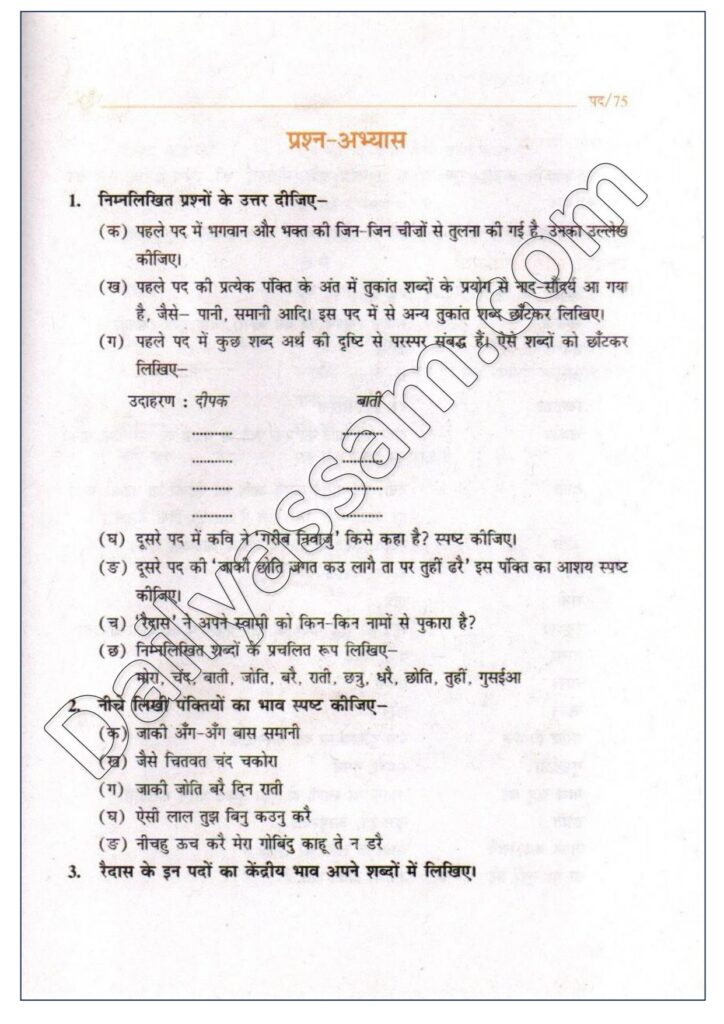 पद/75
प्रश्न-अभ्यास
1. निम्नलिखित प्रश्नों के उत्तर दीजिए–
(क) पहले पद में भगवान और भक्त की जिन-जिन चीज़ों से तुलना की गई है, उनका उल्लेख
कीजिए।
(ख) पहले पद की प्रत्येक पंक्ति के अंत में तुकांत शब्दों के प्रयोग से नाद-सौंदर्य आ गया
है, जैसे– पानी, समानी आदि। इस पद में से अन्य तुकांत शब्द छाँटकर लिखिए।
(ग) पहले पद में कुछ शब्द अर्थ की दृष्टि से परस्पर संबद्ध हैं। ऐसे शब्दों को छाँटकर
लिखिए–
उदाहरण : दीपक बाती
............ ............
............ ............
............ ............
............ ............
(घ) दूसरे पद में कवि ने 'गरीब निवाजु' किसे कहा है? स्पष्ट कीजिए।
(ङ) दूसरे पद की 'जाकी छोति जगत कउ लागै ता पर तुहीं ढरै' इस पंक्ति का आशय स्पष्ट
कीजिए।
(च) 'रैदास' ने अपने स्वामी को किन-किन नामों से पुकारा है?
(छ) निम्नलिखित शब्दों के प्रचलित रूप लिखिए–
मोरा, चंद, बाती, जोति, बरै, राती, छत्रु, धरै, छोति, तुहीं, गुसईआ
2. नीचे लिखी पंक्तियों का भाव स्पष्ट कीजिए–
(क) जाकी अँग-अँग बास समानी
(ख) जैसे चितवत चंद चकोरा
(ग) जाकी जोति बरै दिन राती
(घ) ऐसी लाल तुझ बिनु कउनु करै
(ङ) नीचहु ऊच करै मेरा गोबिंदु काहू ते न डरै
3. रैदास के इन पदों का केंद्रीय भाव अपने शब्दों में लिखिए।
Dailyassam.com